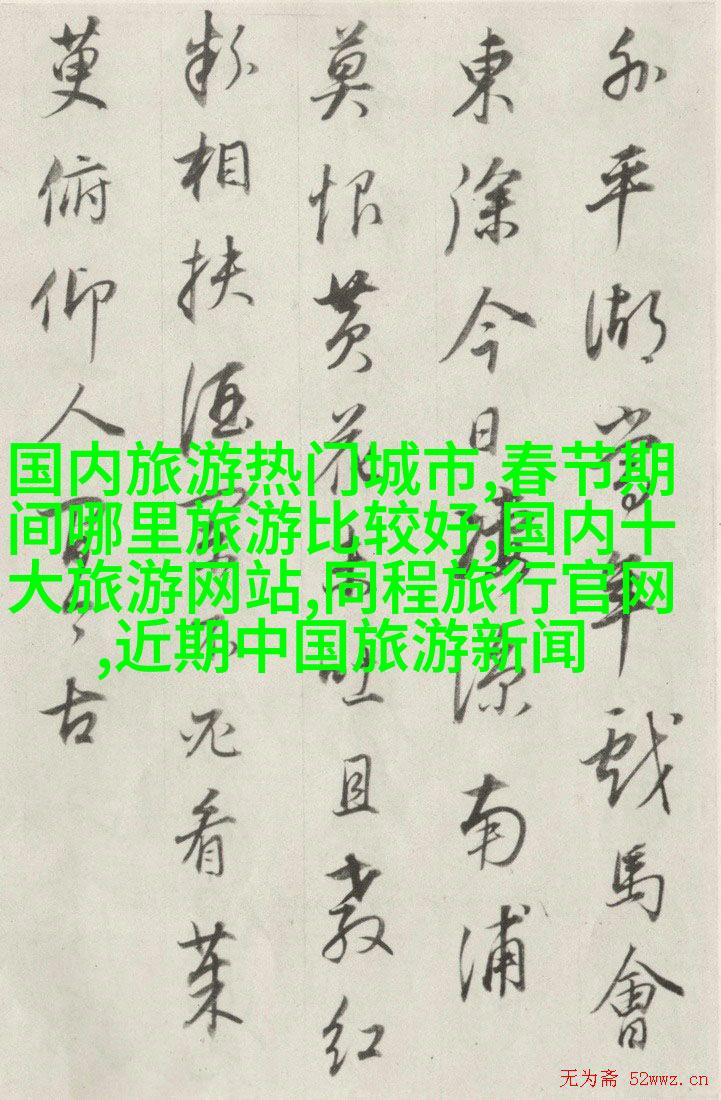 外平湖當年戲馬會
東徐今日凄凉南浦
莫恨黄花吐且教红
粉相扶酒不看茱
萸俯仰人古
国内旅游热门城市,春节期
间哪里旅游比较好,国内十
大旅游网站,同程旅行官网
,近期中国旅游新闻
无为斋 52wwz.cn